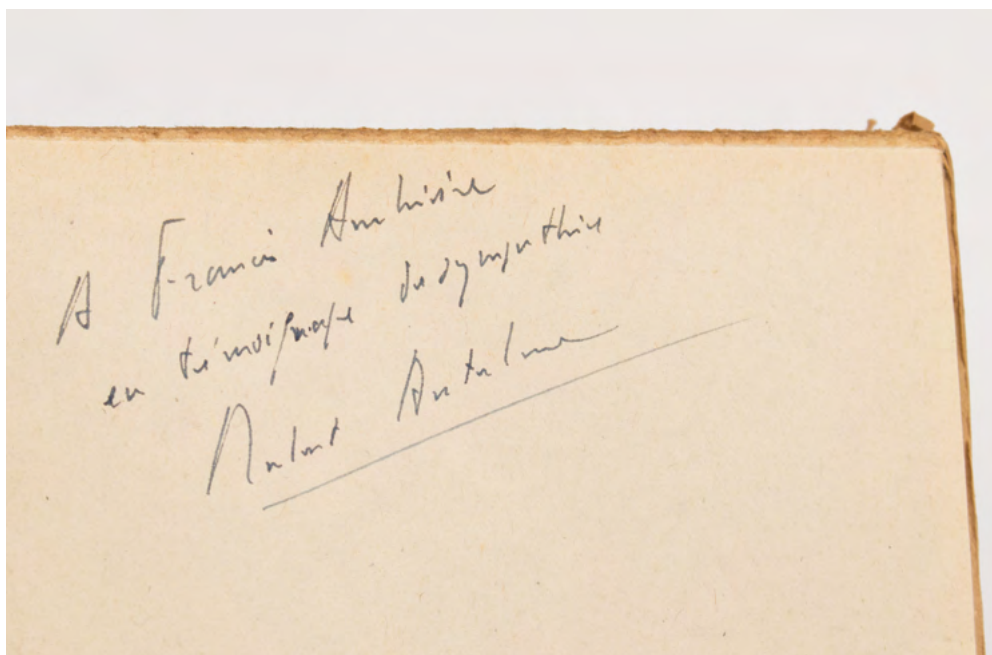 A Francis Ambrière
en témoignage de sympathie
Robert Antelme